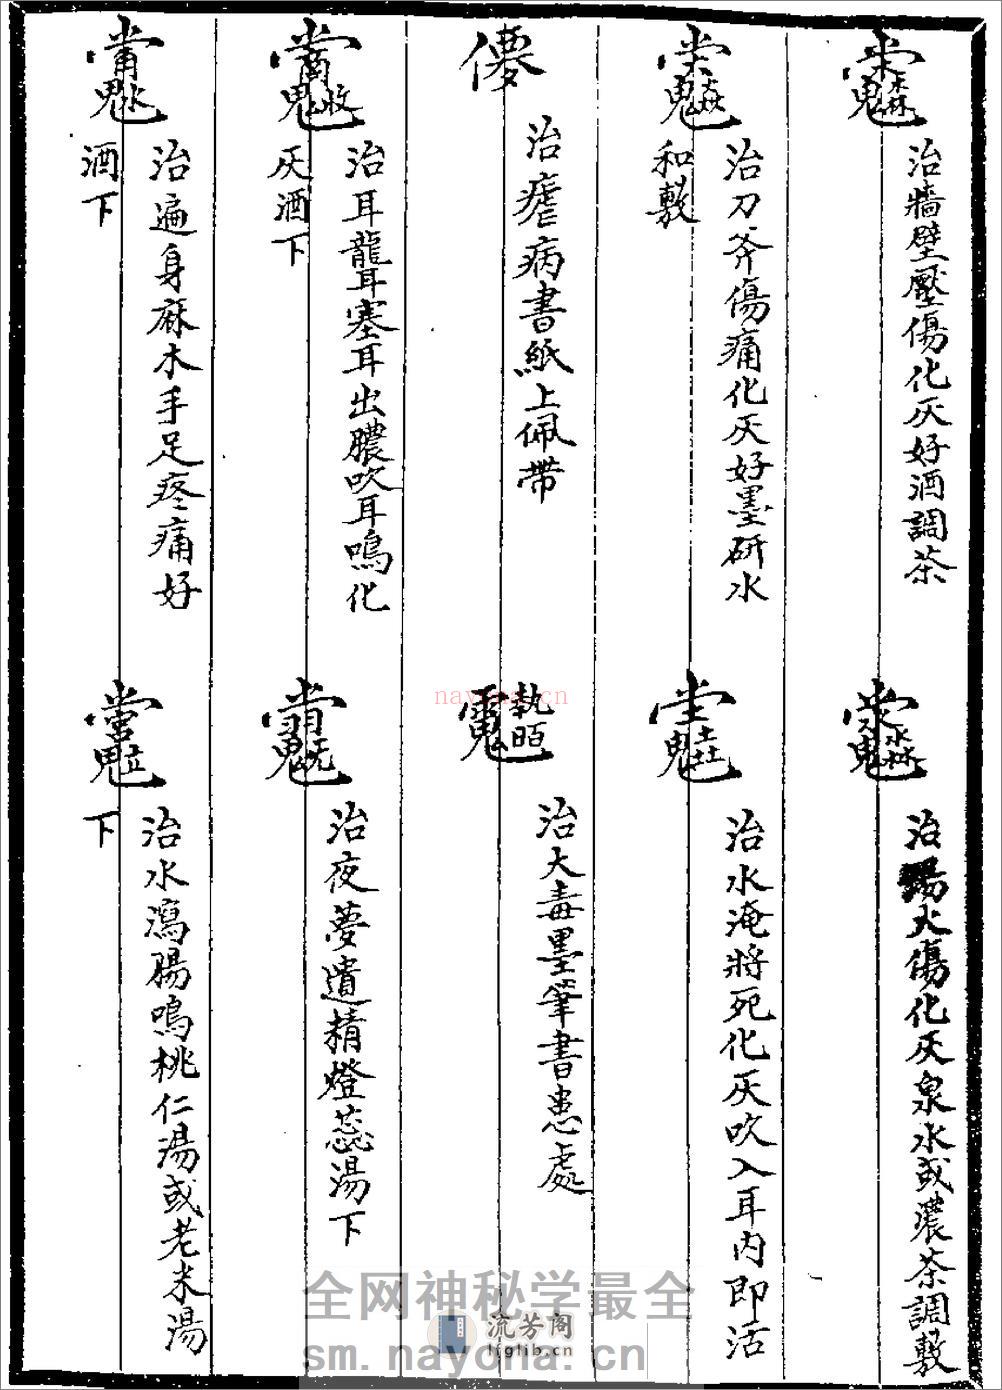 治牆壁壓傷化灰好酒調茶
治湯火傷化灰泉水或濃茶調敷
治刀斧傷痛化灰好墨研水
和敷
治水淹將死化灰吹入耳內即活
治瘧病書紙上佩帶
治大毒墨筆書患處
治耳聾耳塞耳出膿吹耳鳴化
灰酒下
治夜夢遺精燈蕊湯下
治遍身麻木手足疼痛好
酒下
治水瀉腸鳴桃仁湯或老米湯
下
nayona.cn
全网神秘学最全
流芳阁
lfglib.cn
sm.nayona.cn